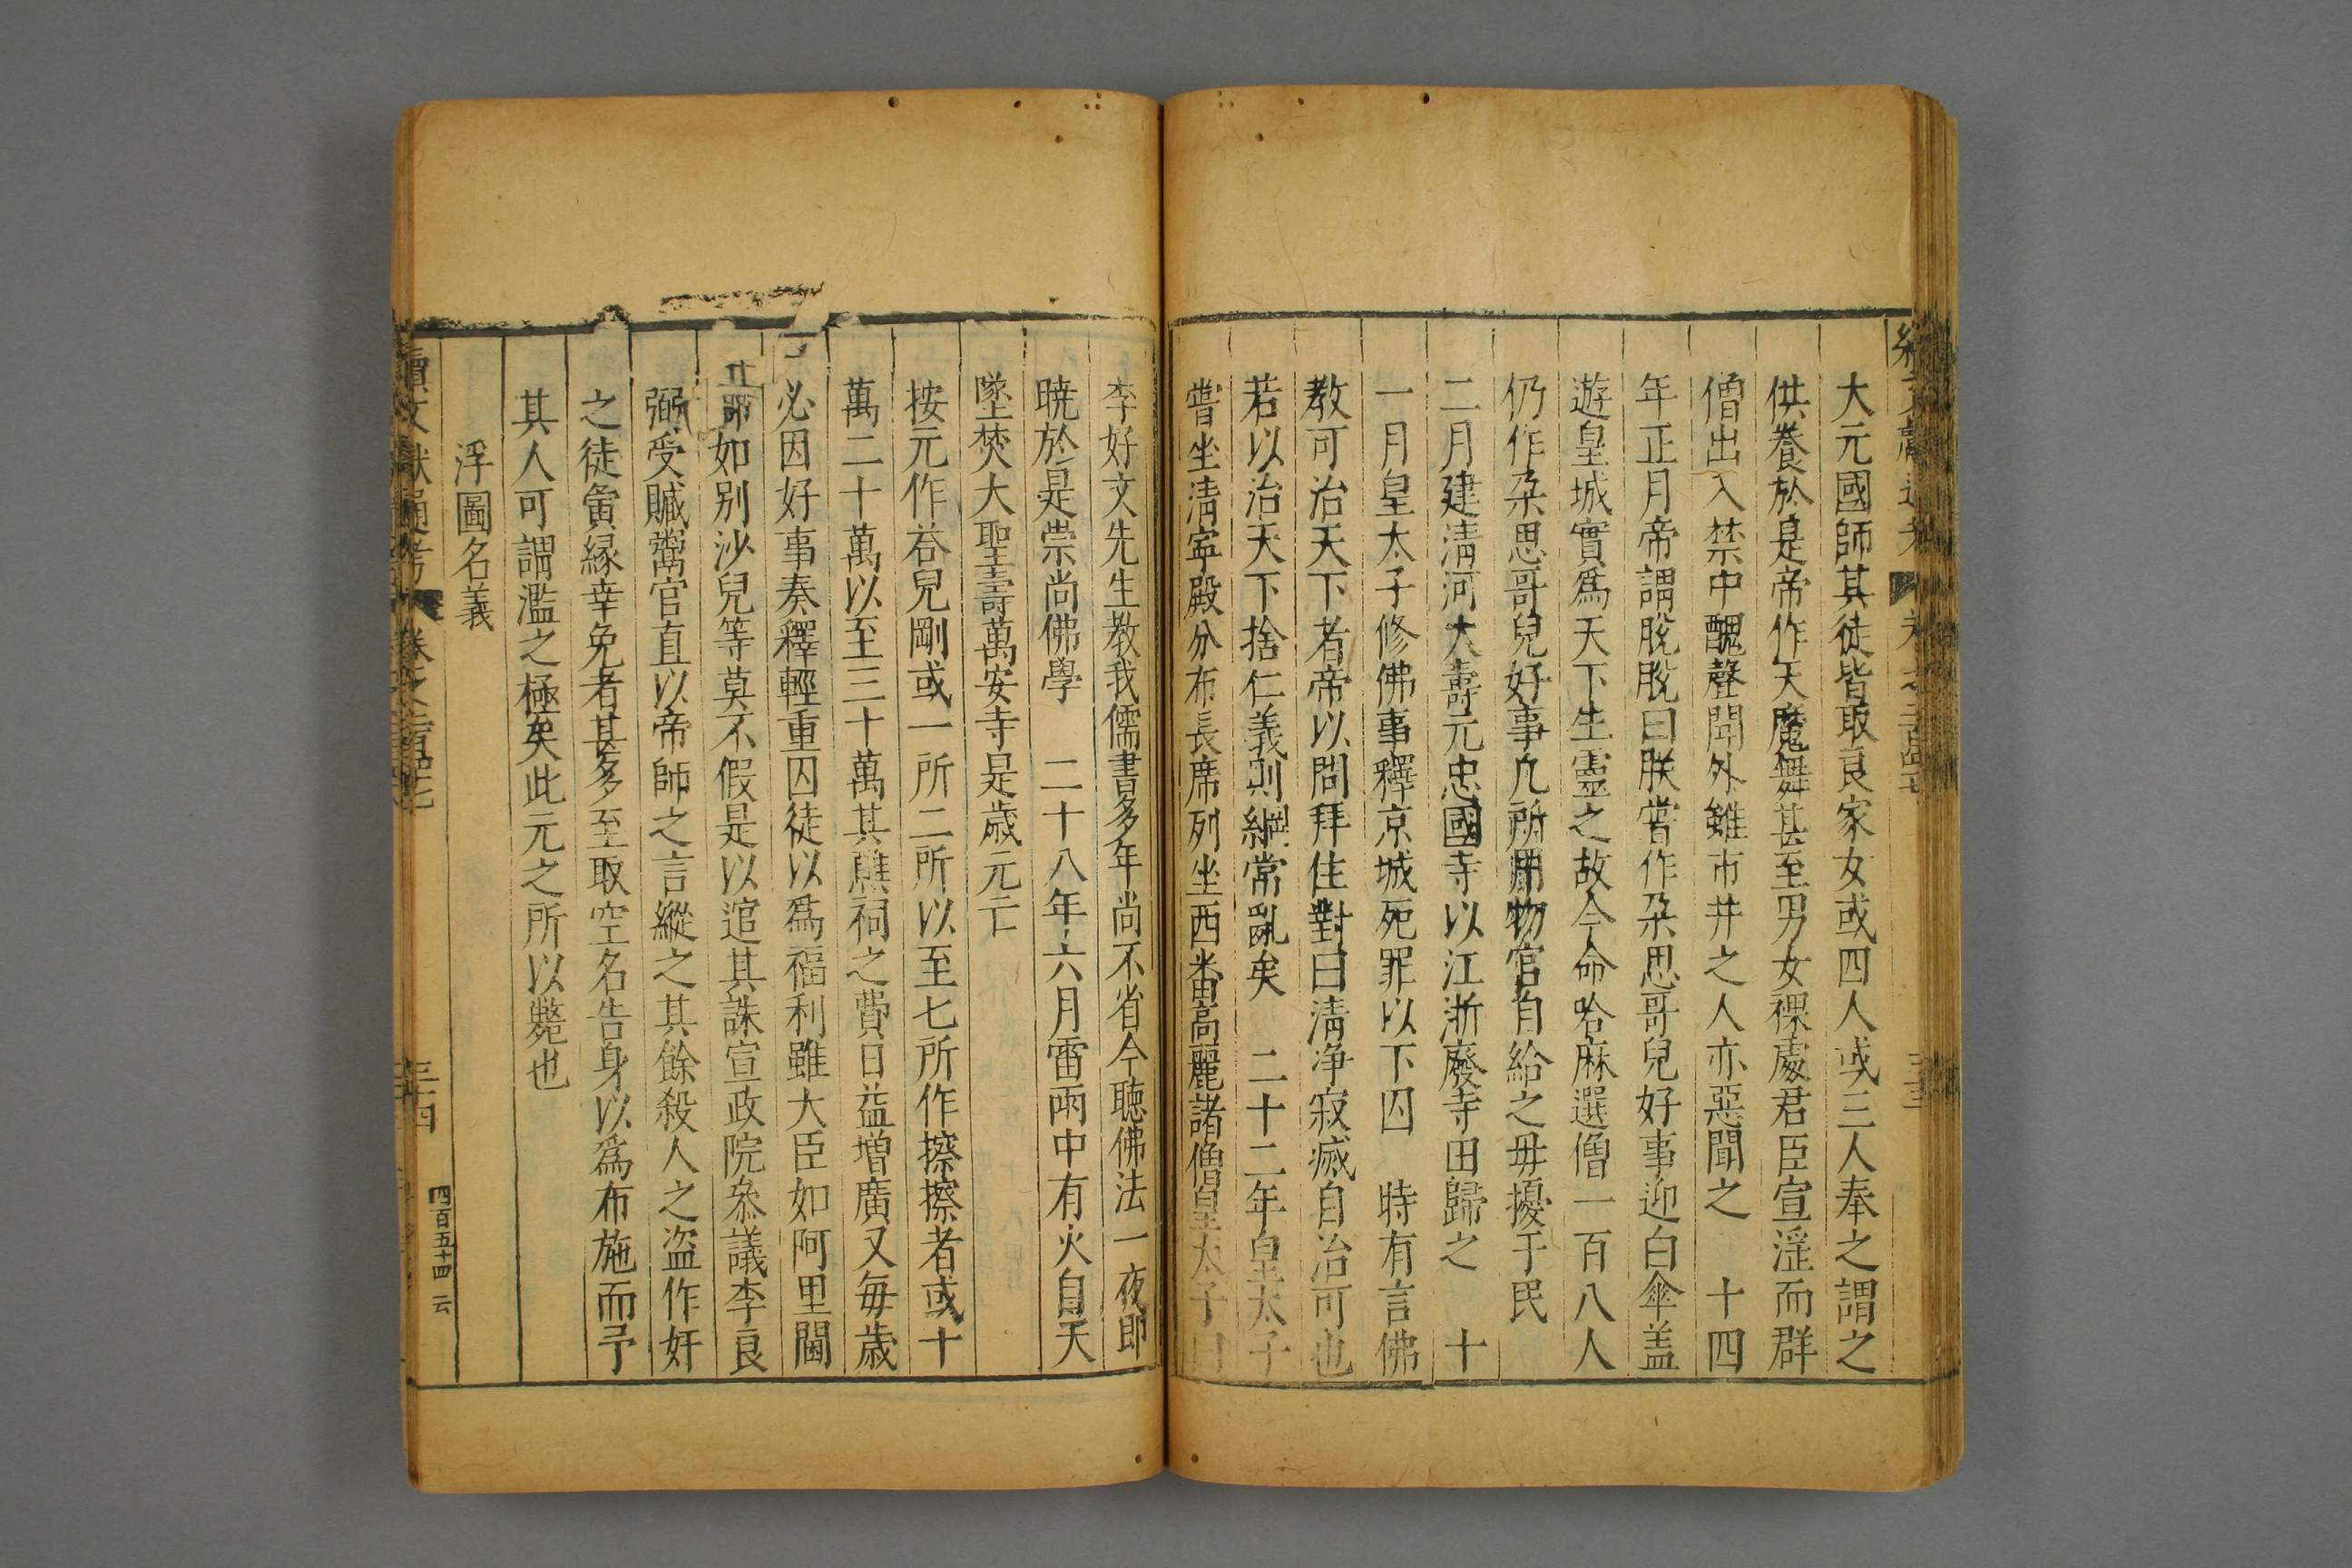 大元國師其徒皆取良家女或四人或三人奉之謂之
供養於是帝作天魔舞甚至男女裸處君臣宣淫而群
僧出入禁中醜聲聞外雖市井之人亦惡聞之 十四
年正月帝謂脫脫曰朕嘗作朶思哥兒好事迎白傘盖
遊皇城實爲天下生靈之故今命哈麻選僧一百八人
仍作朶思哥兒好事凢所用物官自給之毋擾于民
二月建清河大壽元忠國寺以江浙廢寺田歸之 十
一月皇太子修佛事釋京城死罪以下囚 時有言佛
教可治天下者帝以問拜住對曰清净寂滅自治可也
若以治天下捨仁義則綱常亂矣 二十二年皇太子
嘗坐清寧殿分布長席列坐西畨高麗諸僧皇太子曰
李好文先生教我儒書多年尚不省今聽佛法一夜即
曉於是崇尚佛學 二十八年六月雷雨中有火自天
墜焚大聖壽萬安寺是歲元亡
按元作荅兒剛或一所二所以至七所作擦擦者或十
萬二十萬以至三十萬其醮祠之費日益增廣又每歲
必因好事奏釋輕重囚徒以爲福利雖大臣如阿里閫
帥如别沙兒等莫不假是以逭其誅宣政院叅議李良
弼受贓鬻官直以帝師之言縱之其餘殺人之盜作奸
之徒夤緣幸免者甚多至取空名告身以爲布施而予
其人可謂濫之極矣此元之所以斃也
浮圖名義
續文獻通考 卷之二百四十七
三十四
四百五十四 云